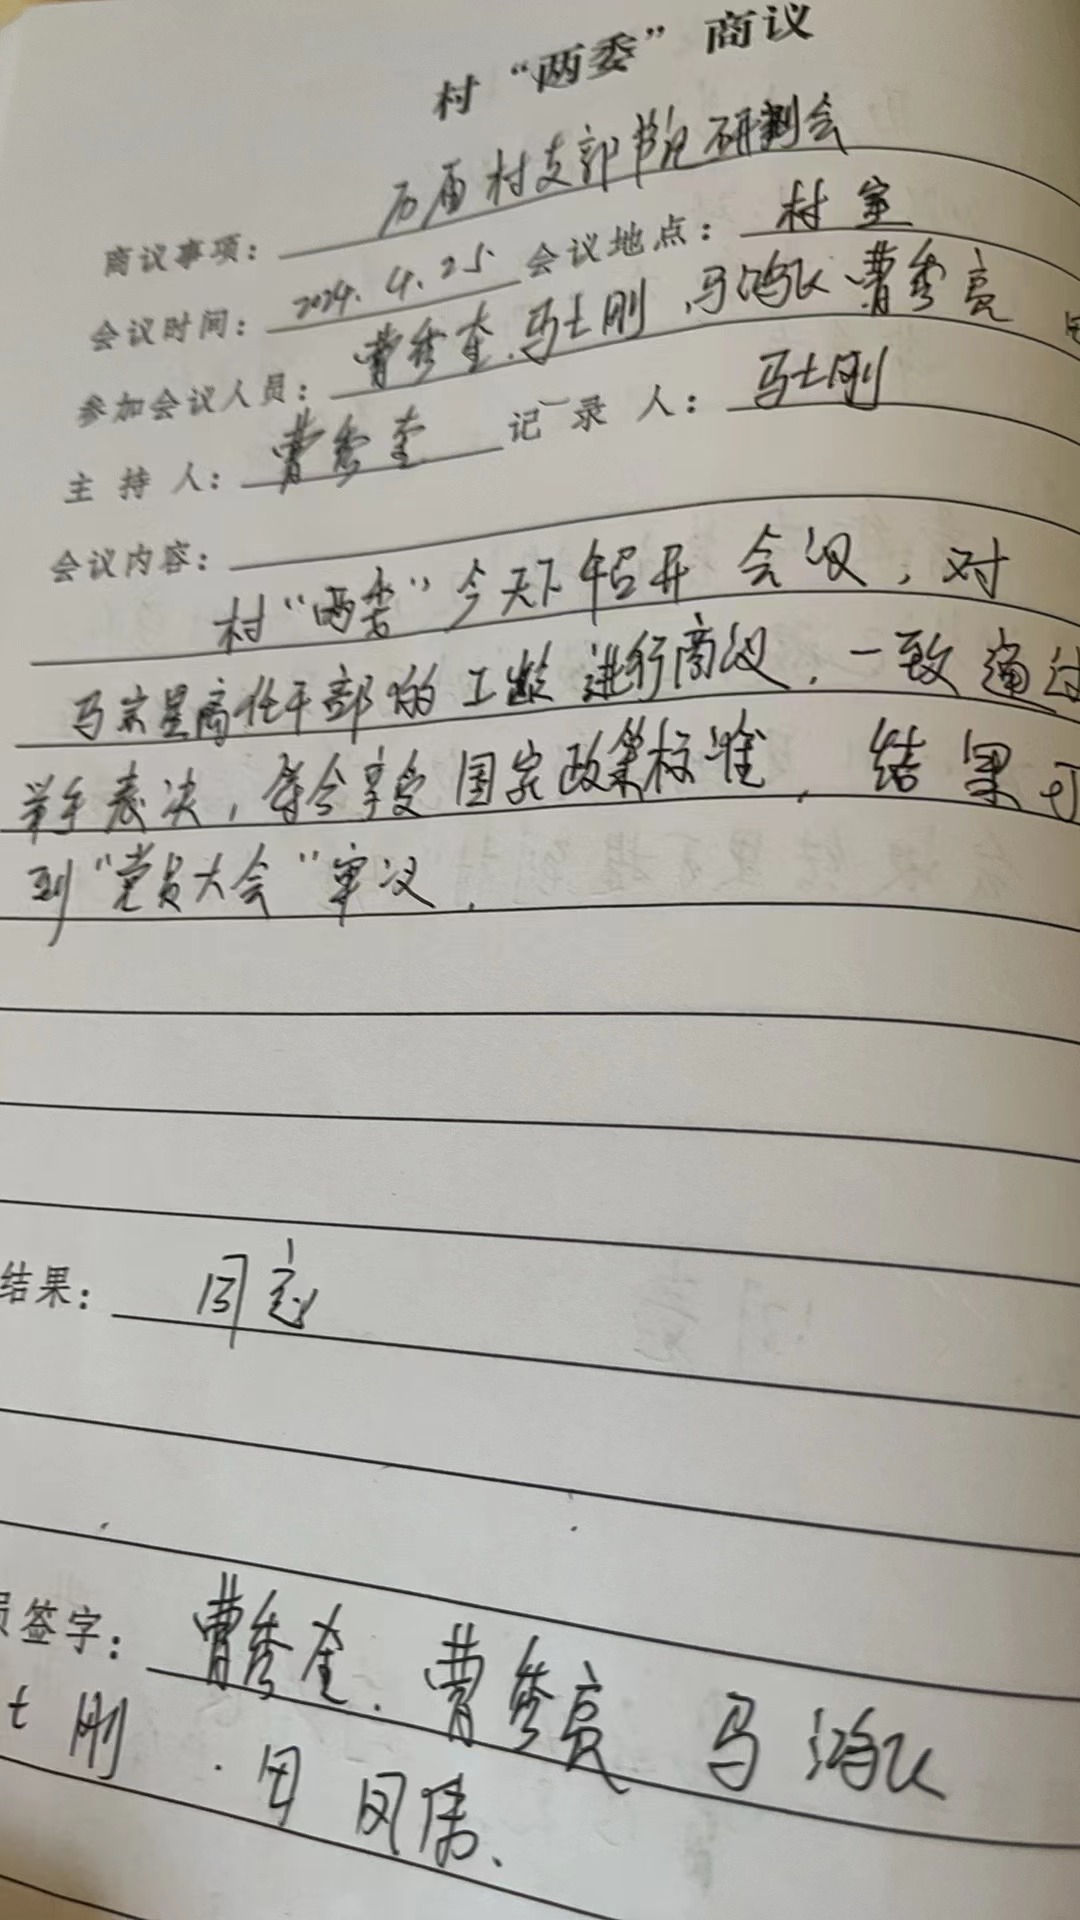 村“两委”商议
商议事项：历届村支部书记研判会
会议时间：2024.4.25 会议地点：村室
参加会议人员：曹秀奎、马士刚、马鸿飞 曹秀亮
主持人：曹秀奎 记录人：马士刚
会议内容：
村“两委”今天下午召开会议，对
马京星离任干部的工龄进行商议，一致通过
举手表决，符合享受国家政策标准，结果可
到“党员大会”审议．
结果：同意
签字：曹秀奎、曹秀亮 马鸿飞
士刚．田凤伟、